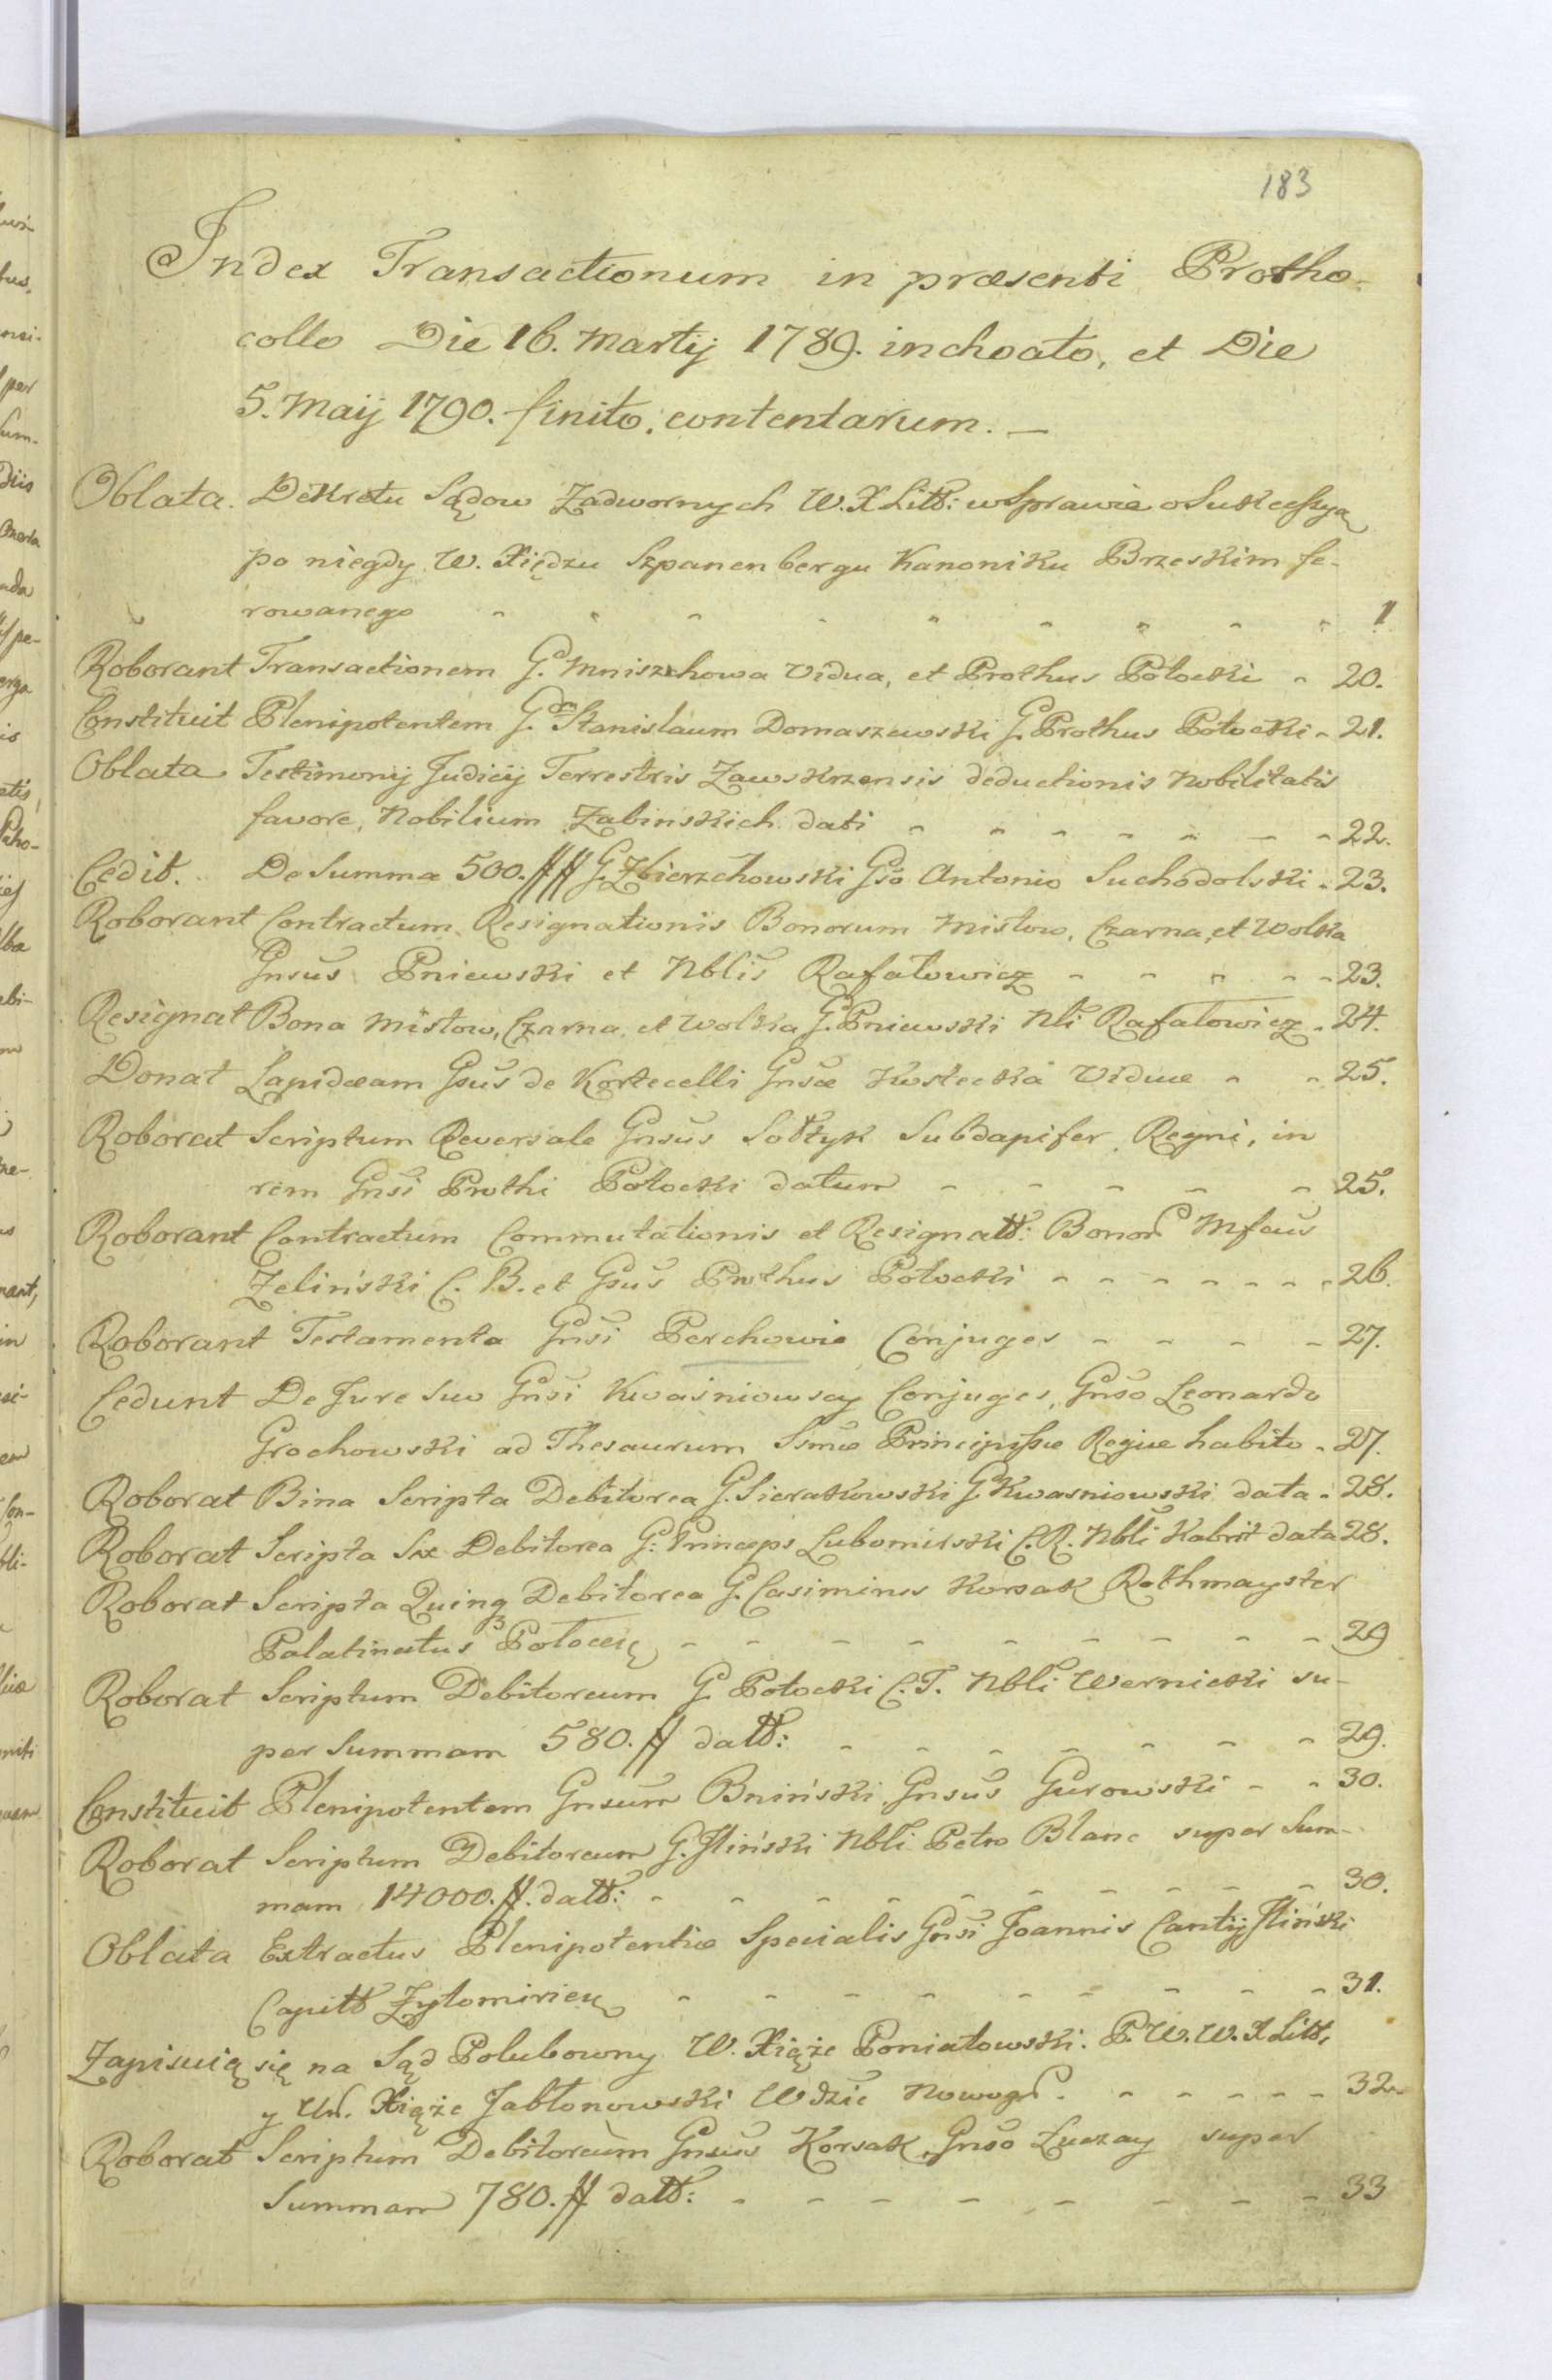 183
Index Transactionum in præsenti Protho-
collo Die 16. Martij 1789. inchoato, et Die
5. Maij 1790. finito, contentarum. —
Oblata. Dekretu Sądow Zadwornych W. X Litt: w Sprawie o Sukcessyą
po niegdy W. Xiędzu Szpanenbergu Kanoniku Brzeskim fe-
rowanego - - - - - - - - - 1
Roborant Transactionem G. Mniszchowa Vidua, et Prothus Potocki - 20.
Constituit Plenipotentem G. Stanislaum Domaszewski G. Prothus Potocki - 21.
Oblata Testimonij Judicij Terrestris Zawskrzensis deductionis Nobilitatis
favore Nobilium Zabinskich dati - - - - - - - 22.
Cedit. De Summa 500. ## G. Zbierzchowski Gso Antonio Suchodolski - 23.
Roborant Contractum Resignationis Bonorum Mistow, Czarna, et Wolka
Gnsus Pniewski et Nblis Rafałowicz - - - - - 23.
Resignat Bona Mistow, Czarna, et Wolka G. Pniewski Nli Rafałowicz - 24.
Donat Lapideam Gsus de Kortecelli Gnsæ Kostecka Viduæ - - 25.
Roborat Scriptum Reversale Gnsus Sołtyk Subdapifer Regni, in
rem Gnsi Prothi Potocki datum - - - - - 25.
Roborant Contractum Commutationis et Resignatt: Bonor Mfcus
Zeliński C. B. et Gsus Prothus Potocki - - - - - - - 26.
Roborant Testamenta Gnsi Perchowie Conjuges - - - - 27.
Cedunt De Jure suo Gnsi Kwaśniowscy Conjuges, Gnso Leonardo
Grochowski ad Thesaurum Ssmæ Principissæ Regiæ habito - 27.
Roborat Bina Scripta Debitorea G. Sierakowski G. Kwasniowski data - 28.
Roborat Scripta Sex Debitorea G: Princeps Lubomirski C. R. Nbli Kabrit data 28.
Roborat Scripta Quinq Debitorea G. Casimirus Korsak Rothmayster
Palatinatus Potocen - - - - - - - - - 29
Roborat Scriptum Debitoreum G. Potocki C. T. Nbli Wernicki su-
per Summam 580. # datt: - - - - - - - 29.
Constituit Plenipotentem Gnsum Bniński Gnsus Gurowski - - 30.
Roborat Scriptum Debitoreum G. Iliński Nbli Petro Blanc super Sum-
mam 14000. #. datt: - - - - - - - - - 30.
Oblata Extractus Plenipotentiæ Specialis Gnsi Joannis Cantij Iliński
Capitt Zytomirien - - - - - - - - - 31.
Zapisuią się na Sąd Polubowny W. Xiąże Poniatowski. P. W. W. X Litt,
y Ur. Xiąże Jabłonowski Wdzic Nowogr. - - - - - 32.
Roborat Scriptum Debitoreum Gnsus Korsak, Gnso Luczay super
Summam 780. # datt: - - - - - - - - 33